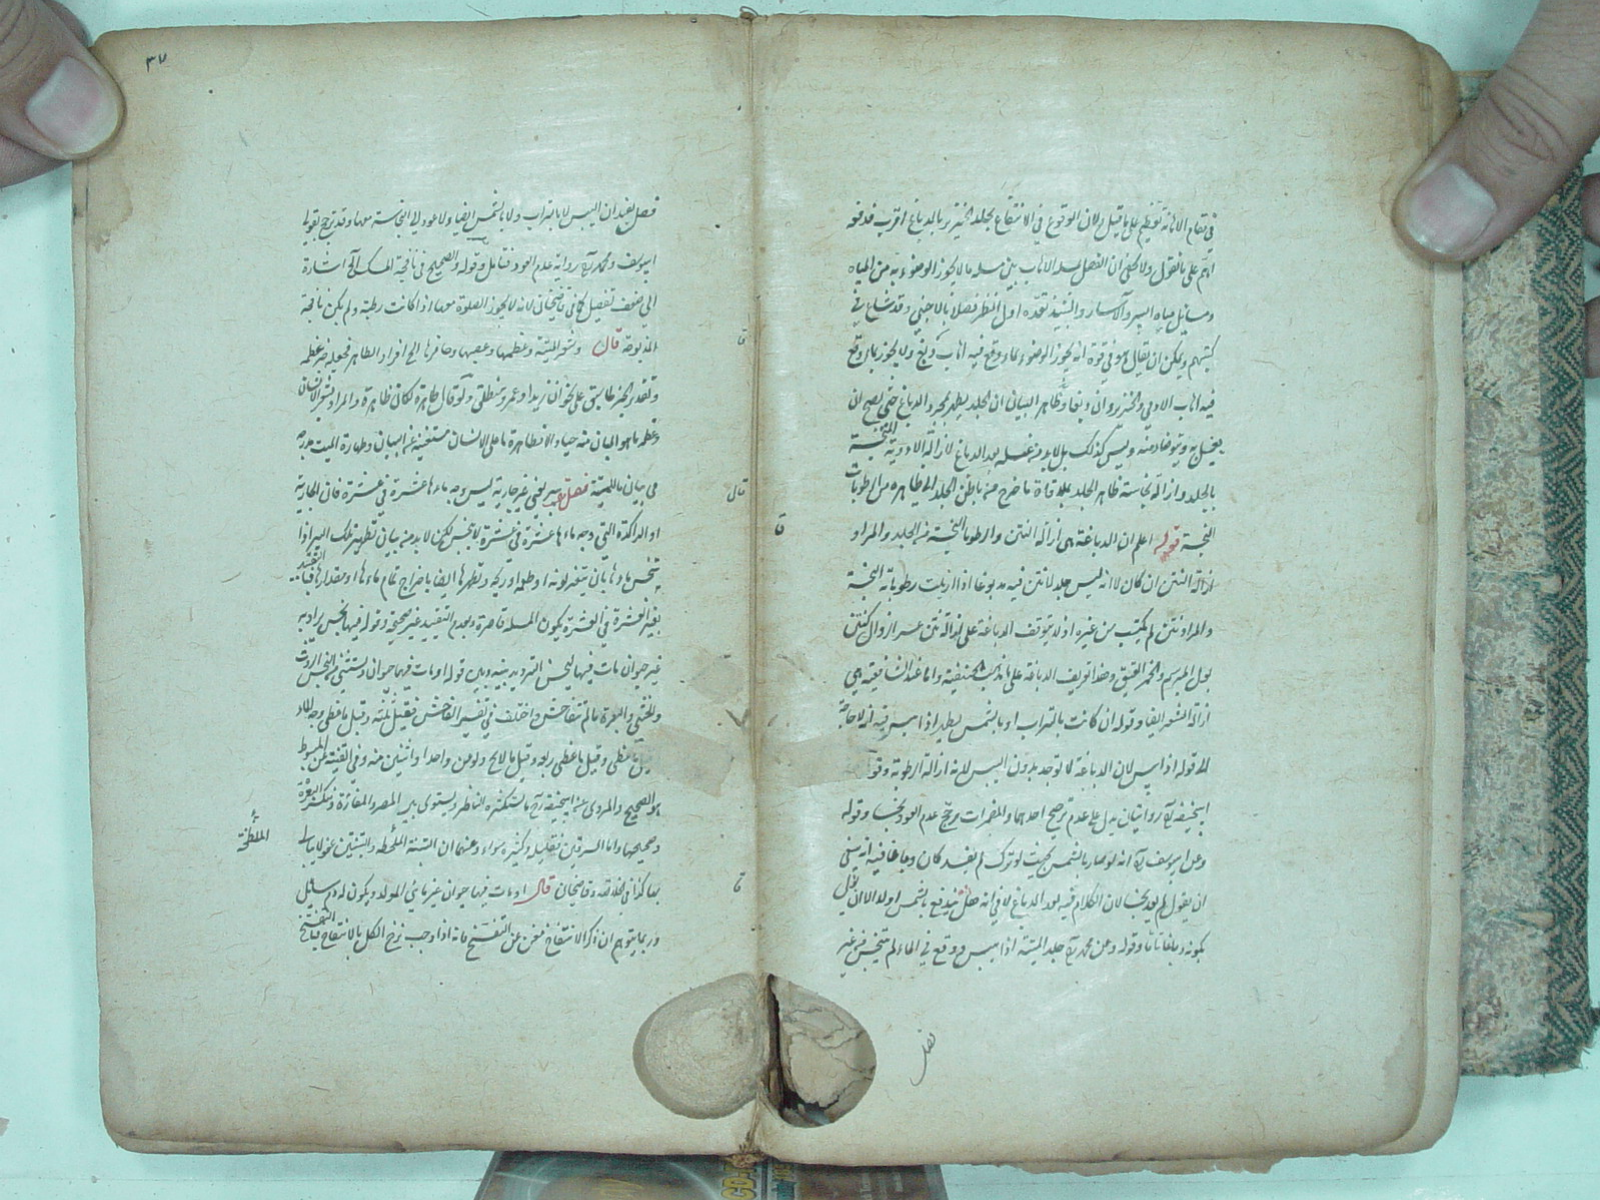 في مقام الاهانة تعظيم على ما قيل ولان الوقوع في الانتفاع بجلد الخنزير بالدباغ اقرب فدفعه
اهم على ما نقول ولا يخفى ان الفصل بمسئلة الاهاب بين مسئلة ما لا يجوز الوضوء به من المياه
ومسائل مياه البير والآسار والنبيذ تعده اول النظر فصلا بالاجنبي وقد شاع في
كتبهم ويمكن ان يقال هو في قوة انه يجوز الوضوء بماء وقع فيه اهاب دبغ ولا يجوز بماء وقع
فيه اهاب الآدمي والخنزير وان دبغا وظاهر البيان ان الجلد يطهر بمجرد الدباغ حتى يصح ان
يغسل به ويتوضأ منه وليس كذلك بل لا بد من غسله بعد الدباغ لازالة الادوية النجسة
بالجلد وازالة نجاسة ظاهر الجلد بملاقاة ما خرج من باطن الجلد الى ظاهره من الرطوبات
النجسة قوله اعلم ان الدباغة هي ازالة النتن والرطوبات النجسة من الجلد والمراد
ازالة النتن ان كان لا انه ليس جلد لا نتن فيه مدبوغا اذا ازيلت رطوباته النجسة
والمراد نتن لم يكتسب من غيره اذ لا يتوقف الدباغة على ازالة نتن
بول الخمر العتيق وهذا تعريف الدباغة على مذهب الحنفية واما عند الشافعية هي
ازالة ايضا وقوله ان كانت بالتراب او بالشمس يطهر اذا يبس فيه انه لا حاجة
الى قوله اذا يبس لان الدباغة لا توجد بدون اليبس لانه ازالة الرطوبة وقوله
ابيحنيفة رح روايتان يدل على عدم ترجيح احدهما والمضمرات يرجح عدم العود نجسا وقوله
وعن ابي يوسف رح انه لو صار بالشمس بحيث لو ترك لم يفسد كان دباغا فيه انه ينبغي
ان يقول لم يعد نجسا لان الكلام فيه بعد الدباغ لا في انه هل يندبغ بالشمس اولا الا ان يؤل
بكونه دباغا تاما وقوله وعن محمد رح جلد الميتة اذا يبس ووقع في الماء لم يتنجس من غير
فصل
٣٧
فصل يفيد ان اليبس لا بالتراب ولا بالشمس ايضا ولا عود الى النجاسة معها وقد ترجح بقول
ابي يوسف ومحمد رح رواية عدم العود فتأمل وقوله والصحيح في نافجة المسك الخ اشارة
الى ضعف تفصيل كما في قاضيخان لانه لا يجوز الصلوة معها اذا كانت رطبة ولم يكن نافجة
المذبوحة قال وشعر الميتة وعظمها وعصبها وحافرها الخ افراد الطاهر فجعله خبر عظمه
وتقدير الخبر مطابق على نحو ان زيدا وعمرو منطلق ولو قال طاهرة لكان ظاهرة والمراد بشعر الانسان
وعظمه ما هو المبان منه حيا والا فطهارة ما على الانسان مستغنية عن البيان وطهارة الميت
في بيان ما للميتة فصل بير يعني غير جارية ليس وجه ماءها عشرة في عشرة فان الجارية
او الراكدة التي وجه ماءها عشرة في عشرة لا يتنجس لكن لا بد من بيان تطهير تلك البير اذا
تنجس ماءها بان يتغير لونه او طعمه او ريحه وتطهيرها ايضا باخراج تمام ماءها او مقدار ما فيها
بغير العشرة في العشرة يكون المسئلة قاصرة وبعدم التقييد غير صحيحة وقوله فيها نجس يراد به
غير حيوان مات فيها ليحسن الترديد بينه وبين قوله او مات فيها حيوان ويستثنى من النجس الروث
والخثي والبعرة ما لم تتفاحش واختلف في تفسير الفاحش فقيل ثلثة وقيل ما غطى وجه الماء
وقيل ما غطى ربعه وقيل ما لا يخلو دلو من واحدا واثنين منه وفي القنية عن المبسوط
هو الصحيح والمروي عن ابيحنيفة رح ما يستكثره الناظر ويستوي بير المصر والمفازة ومنكسر البعرة
وصحيحها واما السرقين فقليله وكثيره سواء وعنهما ان التبنة الملطخة والتبنتين عفو لا يبالى
بها كذا في الخلاصة وقاضيخان قال او مات فيها حيوان غير مائي المولد ويكون له دم سايل
وربما يتوهم ان ذكر الانتفاخ مغن عن التفسخ فانه اذا وجب نزح الكل بالانتفاخ فبالتفسخ
الملطخة